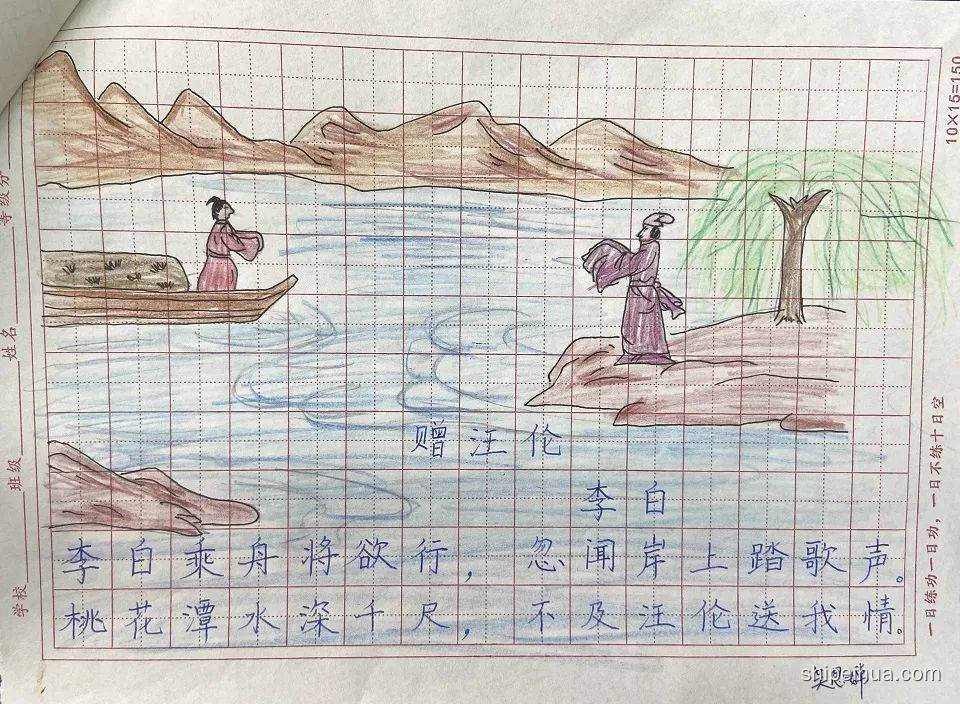 赠汪伦
李白
李白乘舟将欲行，忽闻岸上踏歌声。
桃花潭水深千尺，不及汪伦送我情。
10×15=150
一日练功一日功，一日不练十日空
学校 班级 姓名 等级分
shipeihua.com